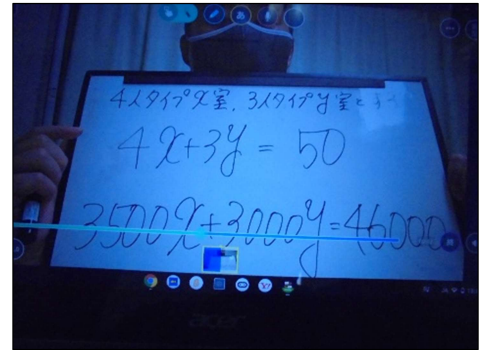 4人タイプx室、3人タイプy室と
4x+3y = 50
3500x+3000y=46000
acer